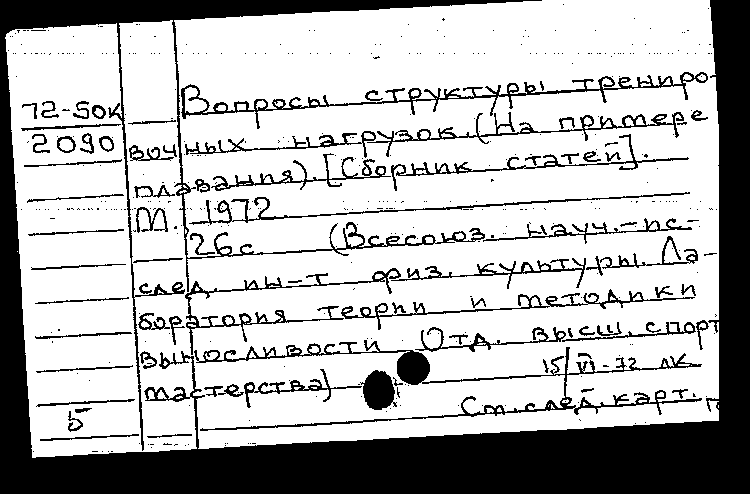 72-50к Вопросы структуры трениро-
2090 вочных нагрузок. (На примере
плавания). [Сборник статей].
М. 1972.
26с. (Всесоюз. науч.-ис-
след. ин-т физ. культуры. Ла-
боратория теории и методики
выносливости Отд. высш. спорт
мастерства)
15/VI-72 ЛК
5 См. след. карт.